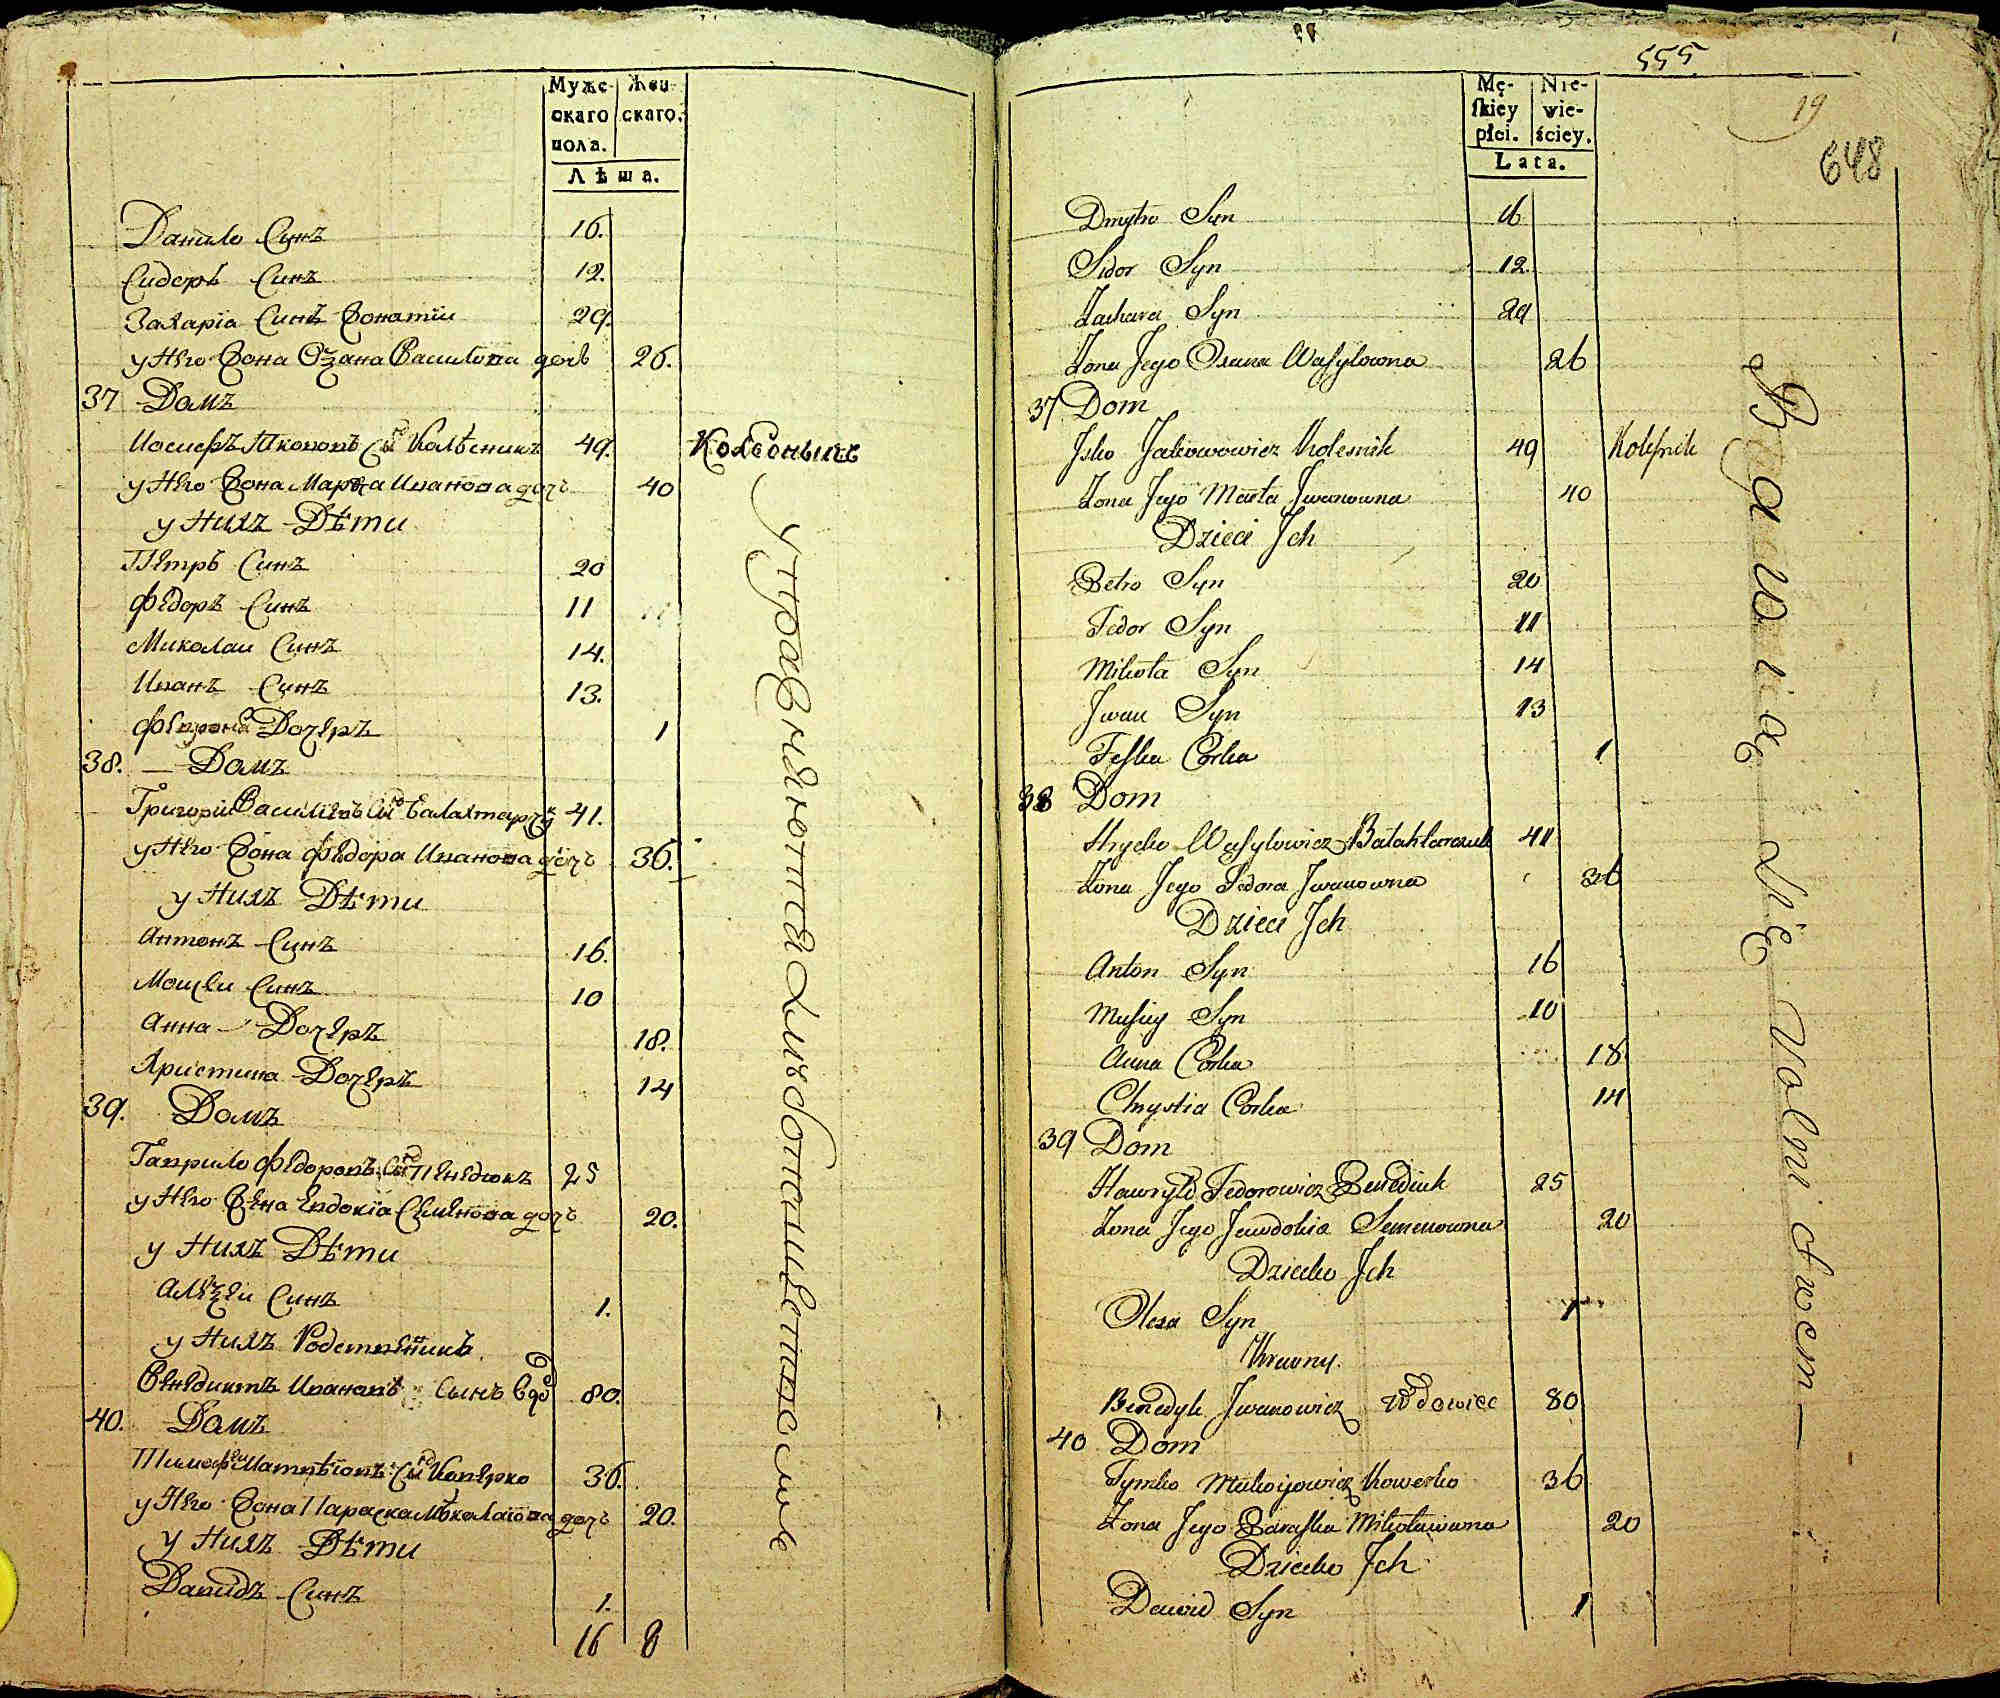 Муже-
скаго
пола.
Жен-
скаго.
Лѣта.
Данило Синъ 16.
Сидоръ Синъ 12.
Захарія Синъ Жонатій 29.
у Него Жона Ѡзана Василова дочь 26.
37 Домъ
Иосифъ Якововъ Сынъ Колѣсникъ 49. Колѣсникъ
у Него Жона Марѳа Иванова дочь 40
у Нихъ Дѣти
Петръ Синъ 20
Федоръ Синъ 11
Миколаи Синъ 14.
Иванъ Синъ 13.
Дочеръ 1
38. Домъ
Григорій Василіевъ Сынъ 41.
у Него Жона Федора Иванова дочь 36.
у Нихъ Дѣти
Антонъ Синъ 16.
Мойсеи Синъ 10
Анна Дочеръ 18.
Христина Дочеръ 14
39. Домъ
Гаврило Федоровъ Сынъ Бенедюкъ 25
у Него Жена Евдокія Семенова дочь 20.
у Нихъ Дѣти
Алеѯеи Синъ 1.
у Нихъ Родственикъ
Венедиктъ Ивановъ Сынъ Вдо 80.
40. Домъ
Тимофеи Матвѣювъ Сынъ Коверко 36.
у Него Жона Параска Миколаюва дочь 20.
у Нихъ Дѣти
Давидъ Синъ 1.
16 8
упражняются Хлебопашеством
555
19
648
Mę-
skiey
płci.
Nie-
wie-
ściey.
Lata.
Dmytro Syn 16
Sidor Syn 12
Zachara Syn 29
Zona Jego Oxana Wasylowna 26
37 Dom
Jsko Jakowowicz Kolesnik 49 Kolesnik
Zona Jego Marta Jwanowna 40
Dzieci Jch
Petro Syn 20
Fedor Syn 11
Mikoła Syn 14
Jwan Syn 13
Feska Corka 1
38 Dom
Hryćko Wasylowicz Bałakłarczuk 41
Zona Jego Fedora Jwanowna 36
Dzieci Jch
Anton Syn 16
Musiey Syn 10
Anna Corka 18
Chrystia Corka 14
39 Dom
Hawryło Fedorowicz Benediuk 25
Zona Jego Jewdokia Semenowna 20
Dziecko Jch
Olexa Syn 1
Krewny.
Benedyk Jwanowicz Wdowiec 80
40 Dom
Tymko Kowerko 36
Zona Jego Paraska Mikołaiowna 20
Dziecko Jch
Dawid Syn 1
Bawią się Rolnictwem